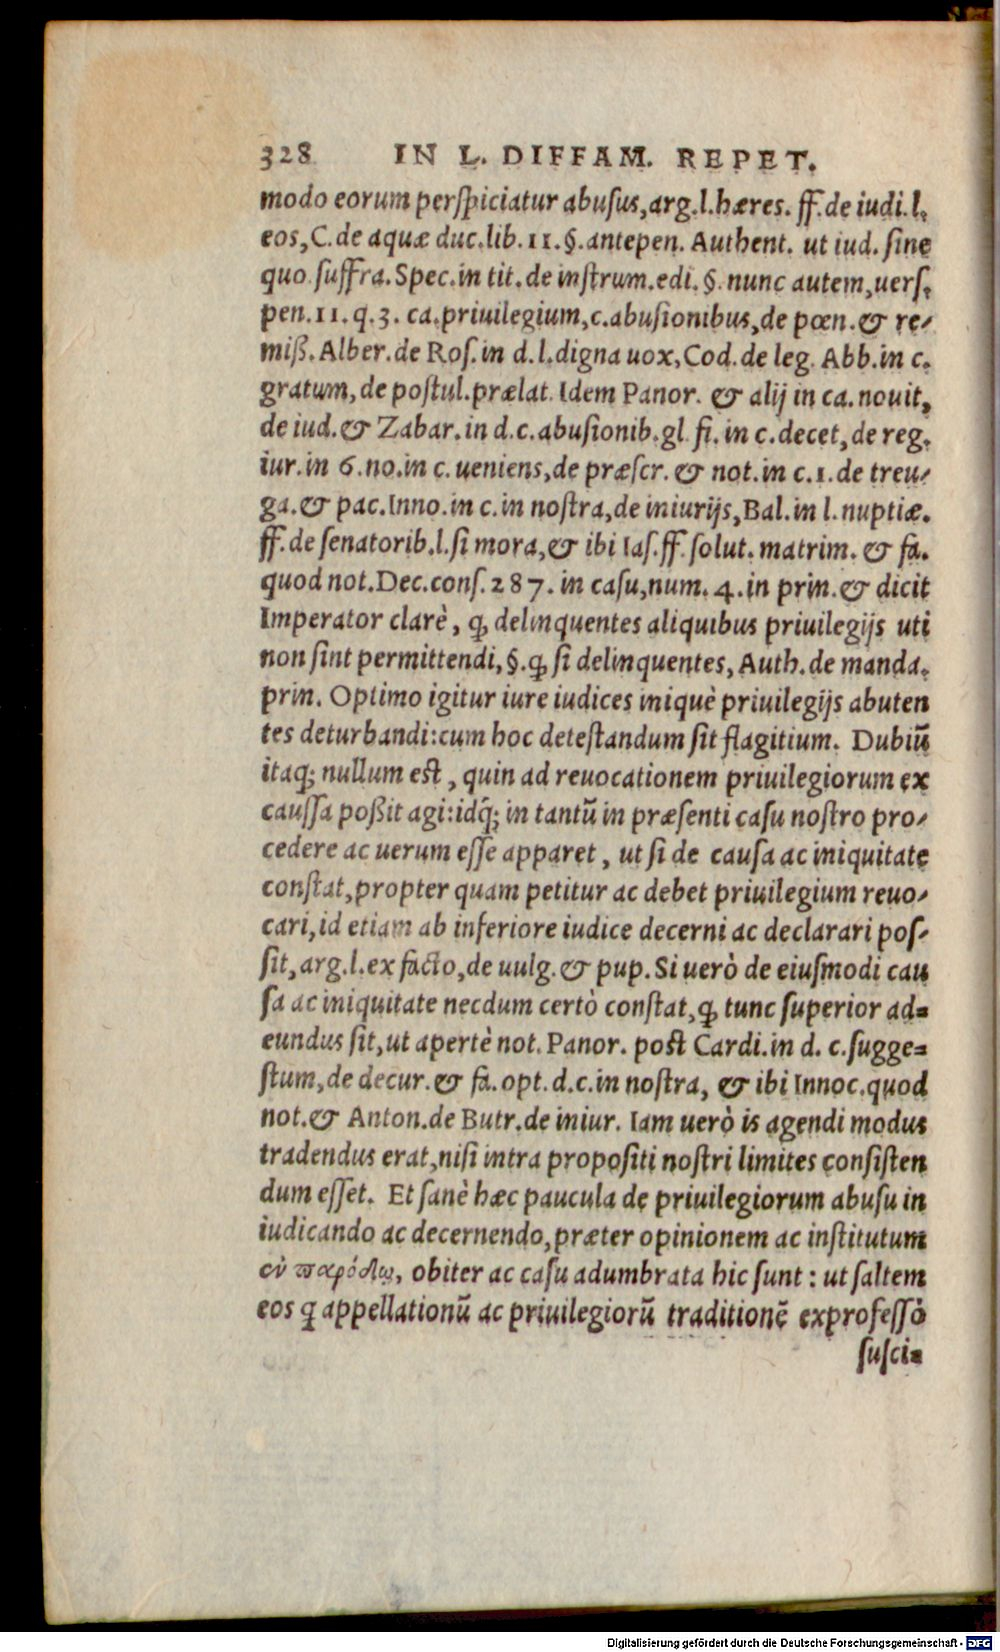 328 IN L. DIFFAM. REPET.
modo eorum perſpiciatur abuſus, arg. l. hæres. ff. de iudi. l.
eos, C. de aquæ duc. lib. 11. §. antepen. Authent. ut iud. ſine
quo ſuffra. Spec. in tit. de inſtrum. edi. §. nunc autem, uerſ.
pen. 11. q. 3. ca. priuilegium, c. abuſionibus, de pœn. & re-
miß. Alber. de Roſ. in d. l. digna uox, Cod. de leg. Abb. in c.
gratum, de poſtul. prælat. Idem Panor. & alij in ca. nouit,
de iud. & Zabar. in d. c. abuſionib. gl. fi. in c. decet, de reg.
iur. in 6. no. in c. ueniens, de præſcr. & not. in c. 1. de treu-
ga. & pac. Inno. in c. in noſtra, de iniurijs, Bal. in l. nuptiæ.
ff. de ſenatorib. l. ſi mora, & ibi Iaſ. ff. ſolut. matrim. & fa.
quod not. Dec. conſ. 287. in caſu, num. 4. in prin. & dicit
Imperator clarè, ꝙ delinquentes aliquibus priuilegijs uti
non ſint permittendi, §. ꝙ ſi delinquentes, Auth. de manda.
prin. Optimo igitur iure iudices iniquè priuilegijs abuten
tes deturbandi: cum hoc deteſtandum ſit flagitium. Dubiũ
itaq; nullum eſt, quin ad reuocationem priuilegiorum ex
cauſſa poßit agi: idq́; in tantũ in præſenti caſu noſtro pro-
cedere ac uerum eſſe apparet, ut ſi de cauſa ac iniquitate
conſtat, propter quam petitur ac debet priuilegium reuo-
cari, id etiam ab inferiore iudice decerni ac declarari poſ-
ſit, arg. l. ex facto, de uulg. & pup. Si uerò de eiuſmodi cau
ſa ac iniquitate necdum certò conſtat, ꝙ tunc ſuperior ad=
eundus ſit, ut apertè not. Panor. poſt Cardi. in d. c. ſugge=
ſtum, de decur. & fa. opt. d. c. in noſtra, & ibi Innoc. quod
not. & Anton. de Butr. de iniur. Iam uerò is agendi modus
tradendus erat, niſi intra propoſiti noſtri limites conſiſten
dum eſſet. Et ſanè hæc paucula de priuilegiorum abuſu in
iudicando ac decernendo, præter opinionem ac inſtitutum
ἐν παρόδῳ, obiter ac caſu adumbrata hic ſunt: ut ſaltem
eos ꝗ appellationũ ac priuilegiorũ traditionẽ exprofeſſò
ſuſci=
Digitalisierung gefördert durch die Deutsche Forschungsgemeinschaft - DFG